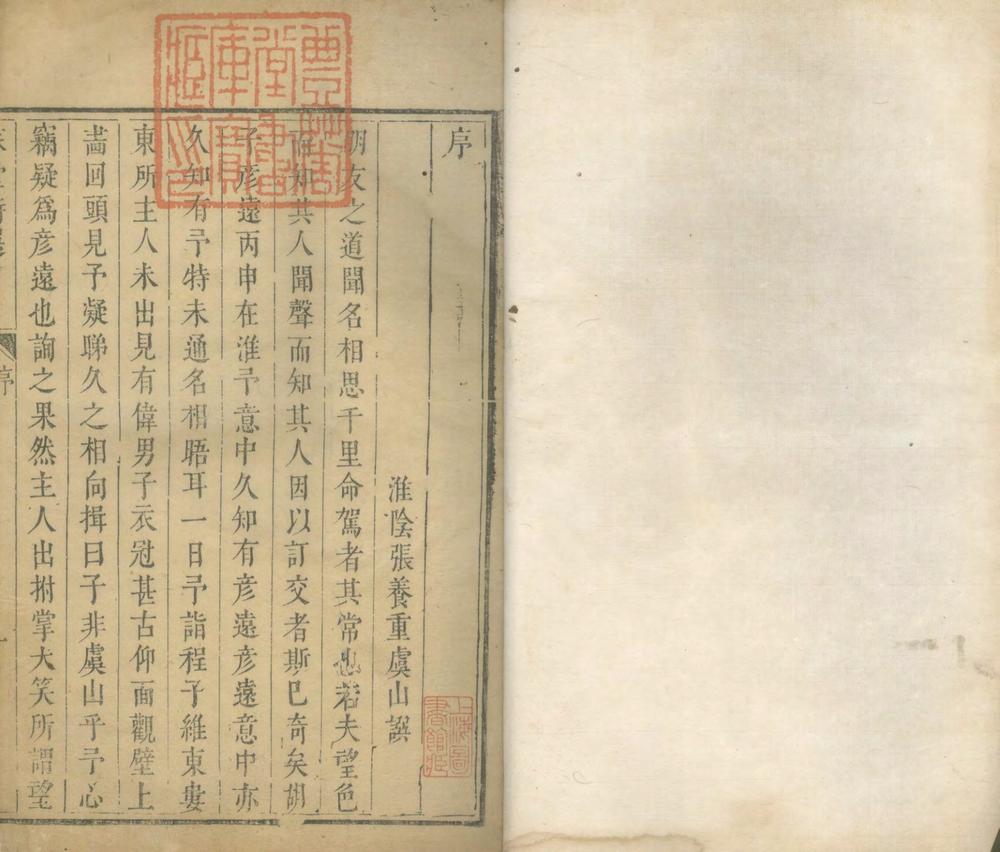 序
淮陰張養重虞山譔
朋友之道聞名相思千里命駕者其常也若夫望色
而知其人聞聲而知其人因以訂交者斯已奇矣胡
子彥遠丙申在淮予意中久知有彥遠彥遠意中亦
久知有予特未通名相晤耳一日予詣程子維東婁
東所主人未出見有偉男子衣冠甚古仰面觀壁上
畵回頭見予凝睇久之相向揖曰子非虞山乎予心
竊疑爲彥遠也詢之果然主人出拊掌大笑所謂望
序
上海圖
書館藏